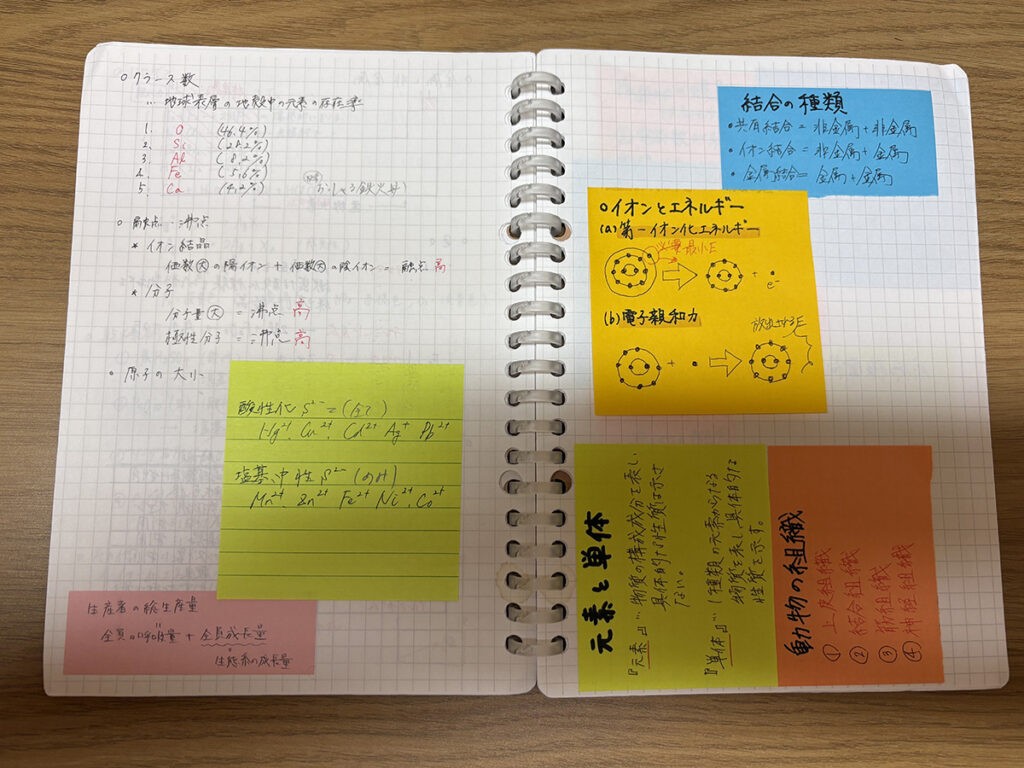 ○クラーク数
… 地球表層の地殻中の元素の存在率
1. O (46.4%)
2. Si (28.2%)
3. Al (8.2%)
4. Fe (5.6%)
5. Ca (4.2%)
おっしゃる鉄火丼)
○ 融点・沸点
* イオン結晶
価数大の陽イオン + 価数大の陰イオン = 融点 高
* 分子
分子量大 = 沸点 高
極性分子 = 沸点 高
○ 原子の大小
酸性化 S²⁻ = (全て)
Hg²⁺ Cu²⁺ Cd²⁺ Ag⁺ Pb²⁺
塩基、中性 S²⁻ (のみ)
Mn²⁺ Zn²⁺ Fe²⁺ Ni²⁺ Co²⁺
生産者の総生産量
全員の呼吸量 + 全員成長量
生態系の成長量
結合の種類
・共有結合 = 非金属 + 非金属
・イオン結合 = 非金属 + 金属
・金属結合 = 金属 + 金属
○イオンとエネルギー
(a) 第一イオン化エネルギー
必要最小E
+ e⁻
(b) 電子親和力
放出するE
+
元素と単体
『元素』… 物質の構成成分を表し、
具体的な性質は示さ
ない。
『単体』… 1種類の元素からなる
物質を表し、具体的な
性質を示す。
動物の組織
① 上皮組織
② 結合組織
③ 筋組織
④ 神経組織